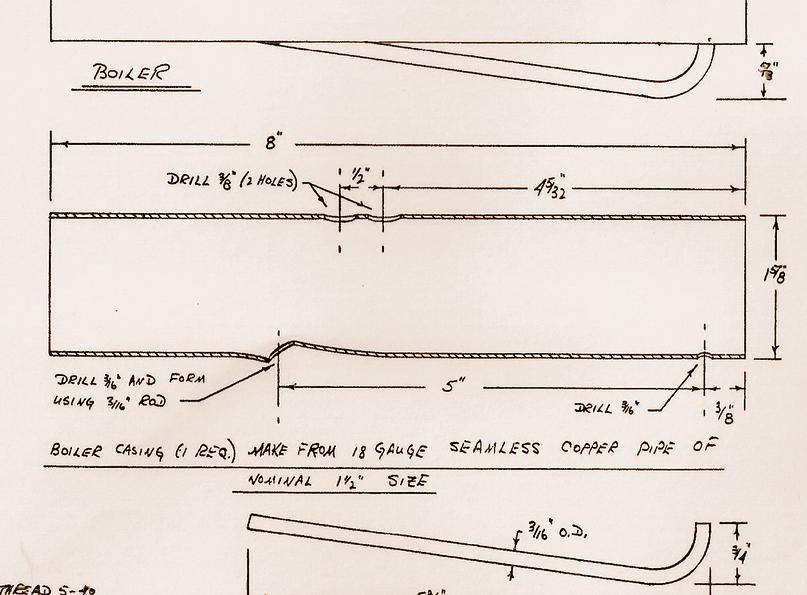 BOILER
8"
DRILL 3/8" (2 HOLES)
1/2"
4 5/32"
1 5/8"
DRILL 3/16" AND FORM
USING 3/16" ROD
5"
DRILL 3/16"
3/8"
BOILER CASING (1 REQ.) MAKE FROM 18 GAUGE SEAMLESS COPPER PIPE OF
NOMINAL 1 1/2" SIZE
3/16" O.D.
3/4"
THREAD 5-40